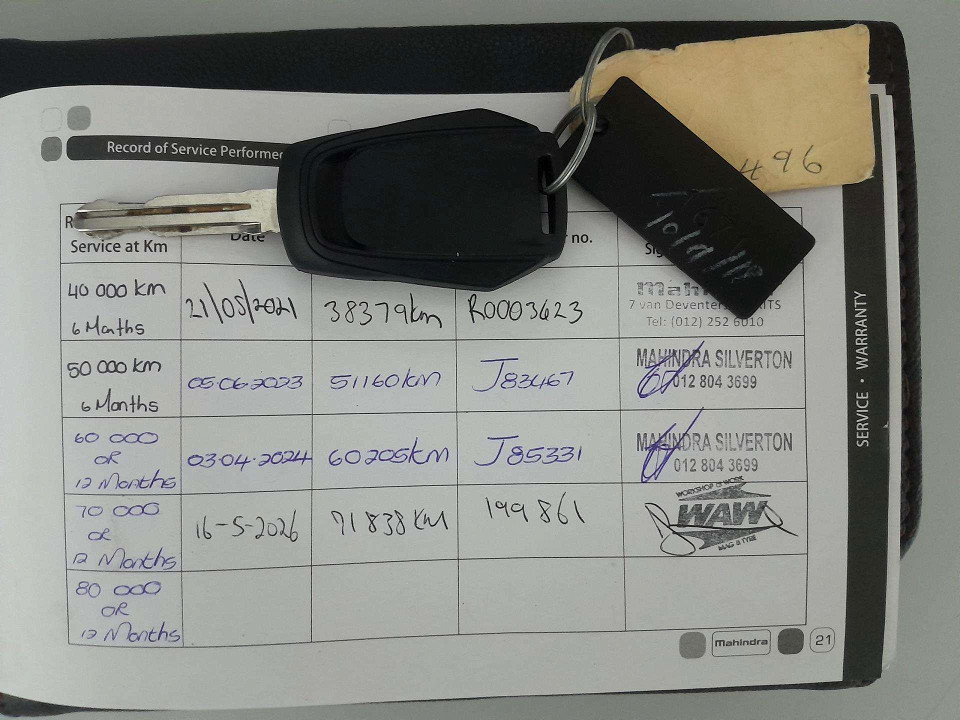 Record of Service Performe
496
Service at Km
Date
no.
40 000 km
6 Months
21/05/2021
38379km
R0003623
7 van Deventer
Tel: (012) 252 6010
50 000 km
6 Months
05.06.2023
51160km
J83467
MAHINDRA SILVERTON
012 804 3699
60 000
OR
12 Months
03.04.2024
60205km
J85331
MAHINDRA SILVERTON
012 804 3699
70 000
OR
12 Months
16-5-2026
71838 KM
199861
WORKSHOP @ WORK
WAW
MAG & TYRE
80 000
OR
12 Months
Mahindra
21
SERVICE • WARRANTY